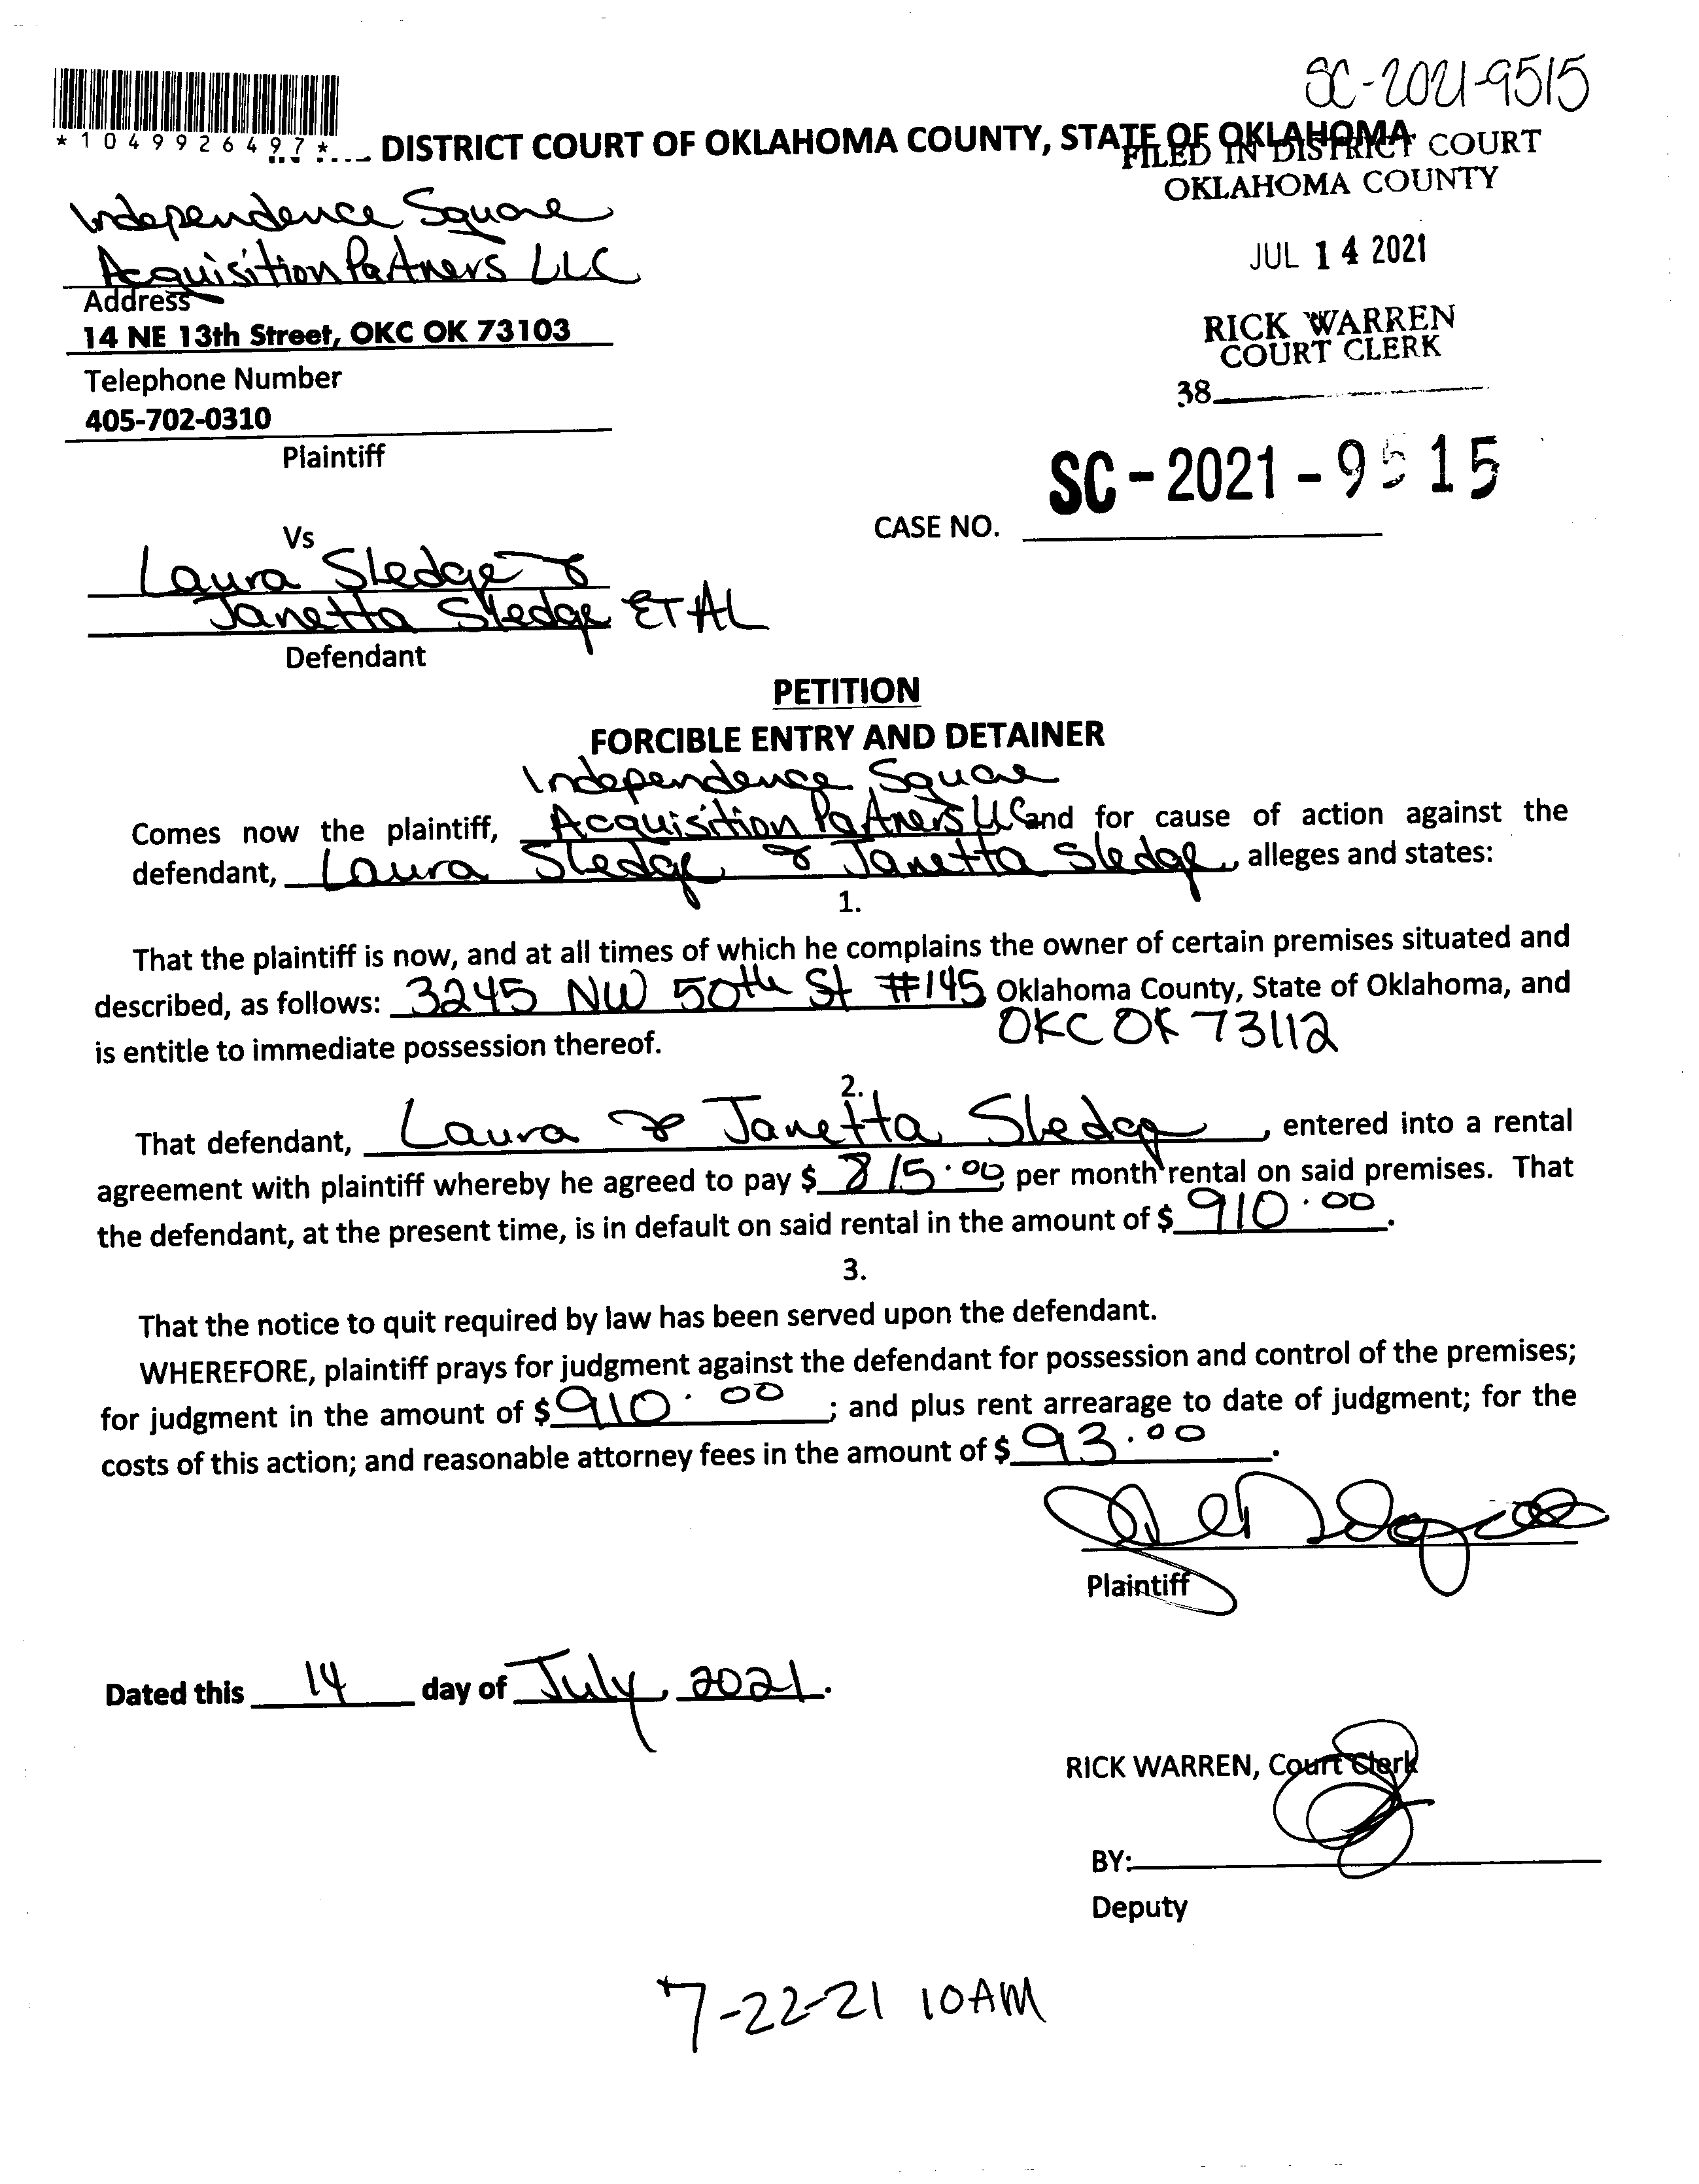 SC-2021-9515
*1049926497*
DISTRICT COURT OF OKLAHOMA COUNTY, STATE OF OKLAHOMA
FILED IN DISTRICT COURT
OKLAHOMA COUNTY
JUL 14 2021
RICK WARREN
COURT CLERK
38
Independence Square
Acquisition Partners LLC
Address
14 NE 13th Street, OKC OK 73103
Telephone Number
405-702-0310
Plaintiff
SC-2021-9515
CASE NO.
Vs
Laura Sledge &
Janetta Sledge ET AL
Defendant
PETITION
FORCIBLE ENTRY AND DETAINER
Independence Square
Comes now the plaintiff, Acquisition Partners LLC and for cause of action against the
defendant, Laura Sledge & Janetta Sledge, alleges and states:
1.
That the plaintiff is now, and at all times of which he complains the owner of certain premises situated and
described, as follows: 3245 NW 50th St #145 Oklahoma County, State of Oklahoma, and
OKC OK 73112
is entitle to immediate possession thereof.
2.
That defendant, Laura & Janetta Sledge, entered into a rental
agreement with plaintiff whereby he agreed to pay $ 815.00 per month rental on said premises. That
the defendant, at the present time, is in default on said rental in the amount of $ 910.00.
3.
That the notice to quit required by law has been served upon the defendant.
WHEREFORE, plaintiff prays for judgment against the defendant for possession and control of the premises;
for judgment in the amount of $ 910.00; and plus rent arrearage to date of judgment; for the
costs of this action; and reasonable attorney fees in the amount of $ 93.00.
Plaintiff
Dated this 14 day of July, 2021.
RICK WARREN, Court Clerk
BY:
Deputy
7-22-21 10AM